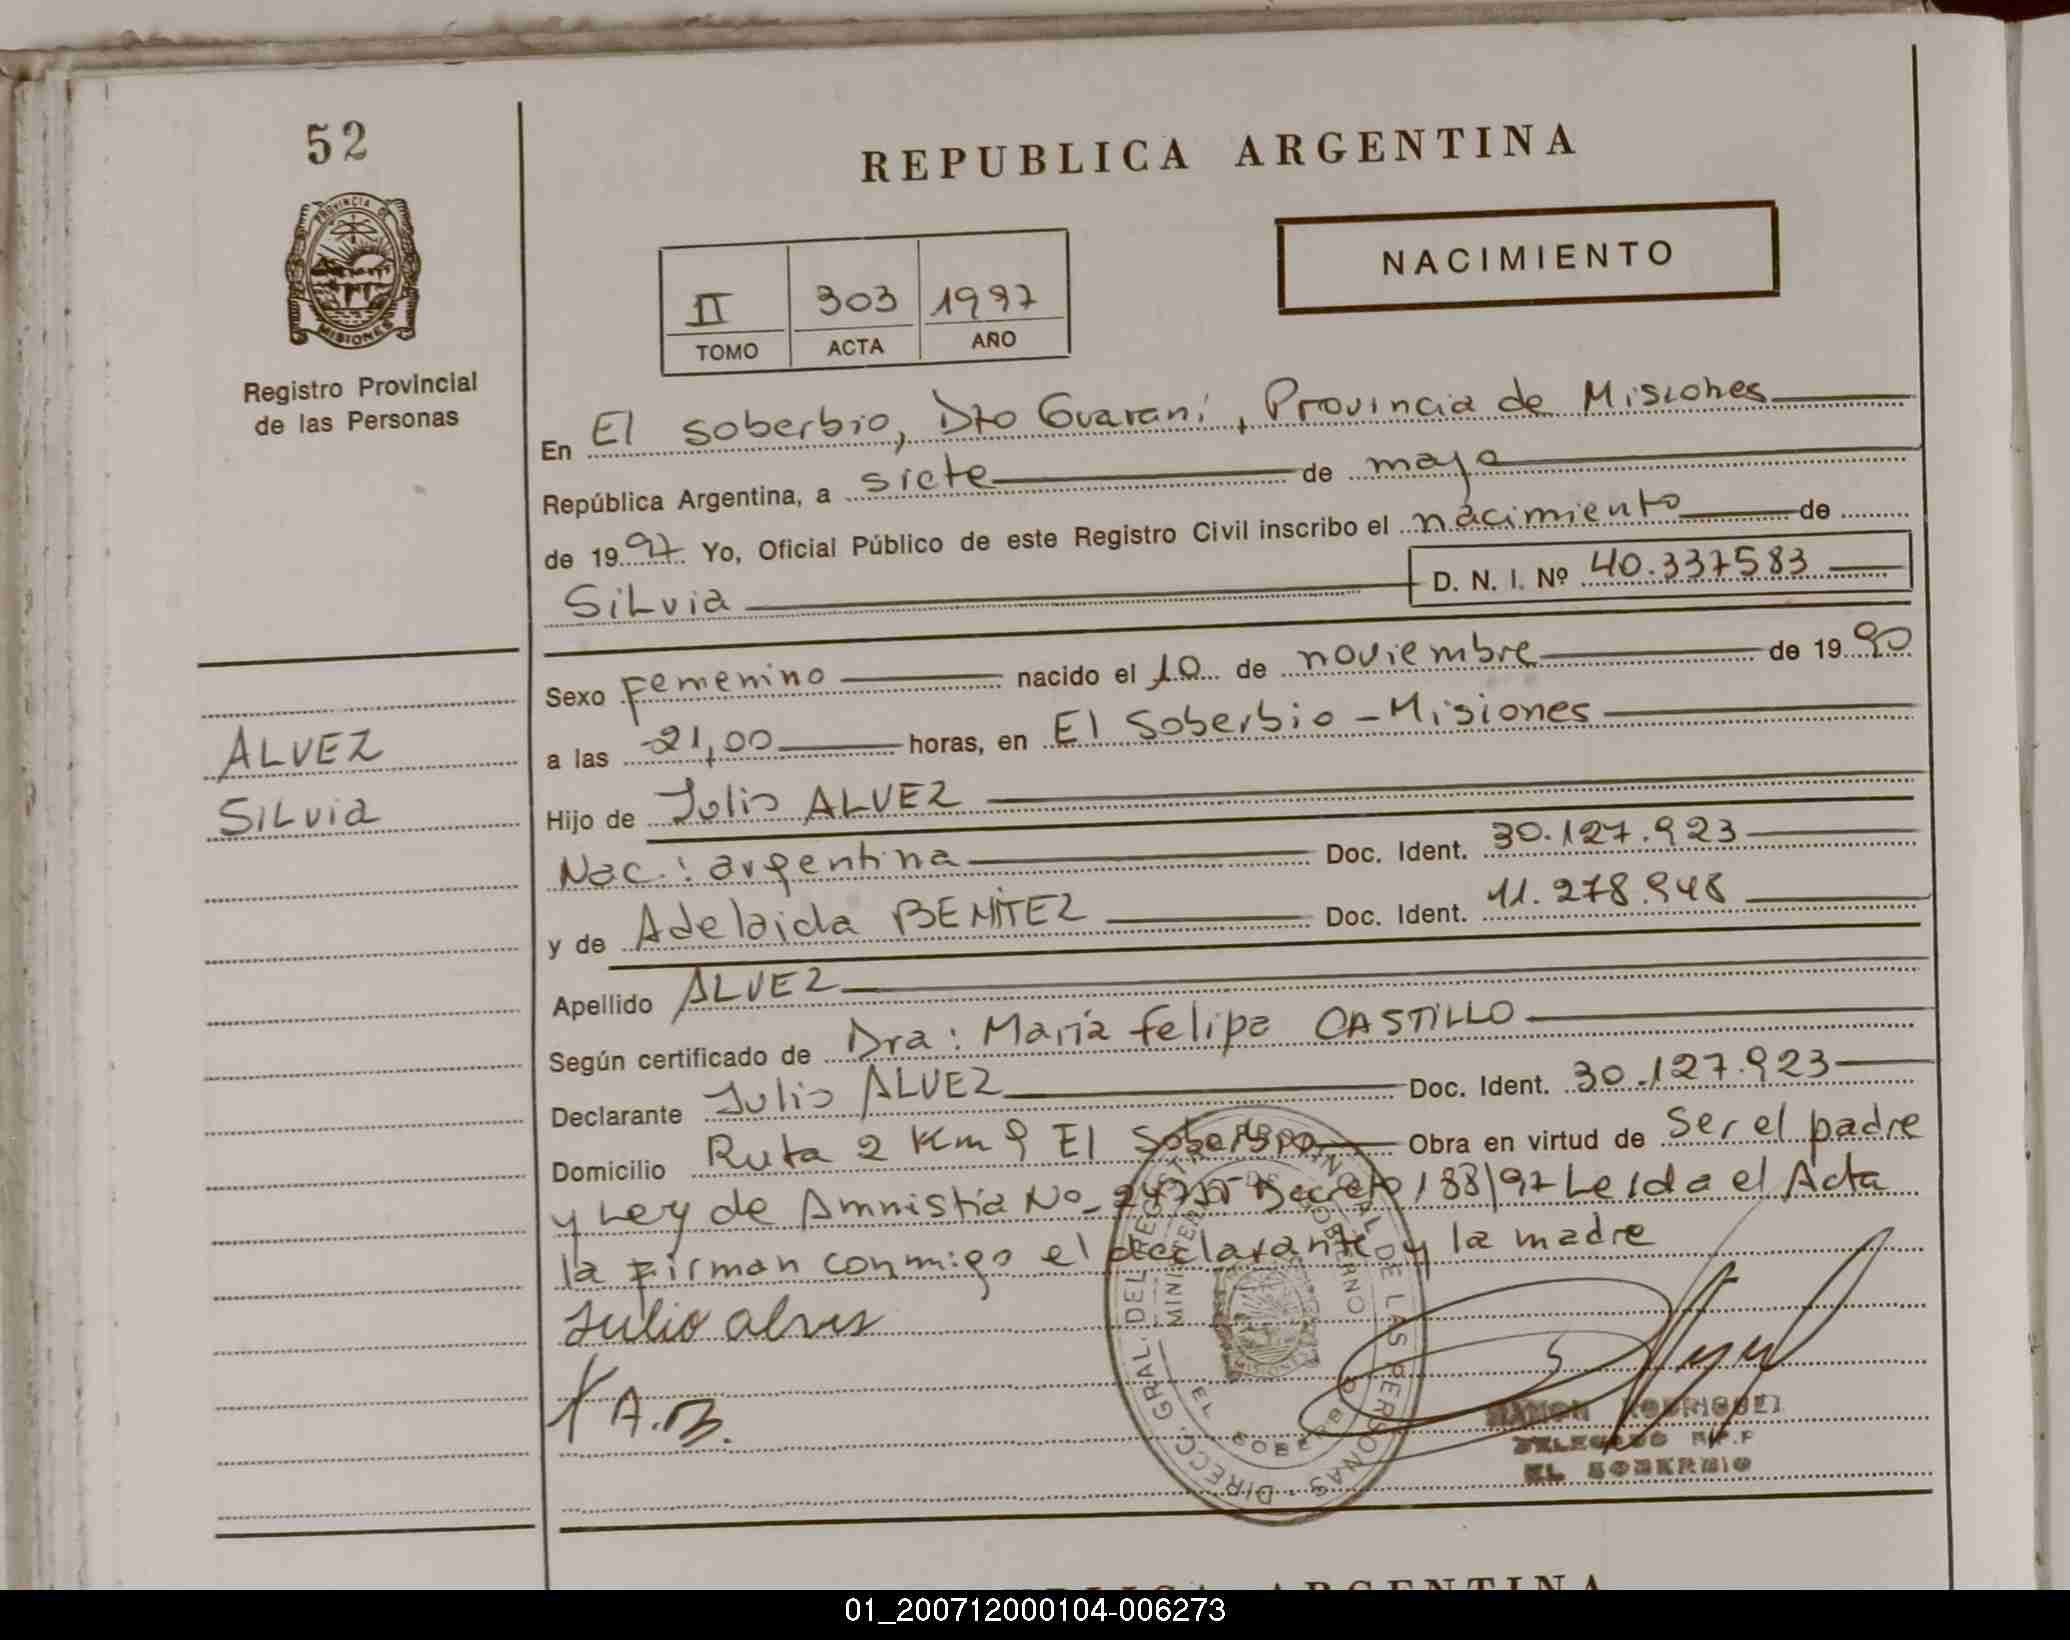 52
REPUBLICA ARGENTINA
PROVINCIA DE
MISIONES
NACIMIENTO
II 303 1997
TOMO ACTA AÑO
Registro Provincial
de las Personas
En El Soberbio, Dto Guaraní, Provincia de Misiones
República Argentina, a siete de mayo
de 1997 Yo, Oficial Público de este Registro Civil inscribo el nacimiento de
SiLvia D. N. I. Nº 40.337583
Sexo Femenino nacido el 10 de noviembre de 1990
a las 21,00 horas, en El Soberbio - Misiones
ALVEZ
SiLvia
Hijo de Julio ALVEZ
Nac.: argentina Doc. Ident. 30.127.923
y de Adelaida BENÍTEZ Doc. Ident. 11.278.948
Apellido ALVEZ
Según certificado de Dra: María Felipa CASTILLO
Declarante Julio ALVEZ Doc. Ident. 30.127.923
Domicilio Ruta 2 Km 9 El Soberbio Obra en virtud de Ser el padre
y Ley de Amnistía No Decreto 188/97 Leída el Acta
la firman conmigo el declarante y la madre
Julio alves
A.B.
DIRECC. GRAL. DEL REGISTRO PROVINCIAL DE LAS PERSONAS
MINISTERIO DE GOBIERNO
EL SOBERBIO
MISIONES
RAMON RODRIGUEZ
DELEGADO R.P.P
EL SOBERBIO
REPUBLICA ARGENTINA
01_200712000104-006273